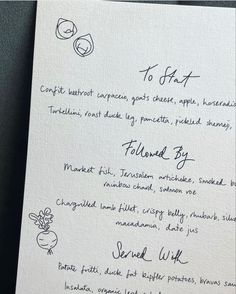 To Start
Confit beetroot carpaccio, goats cheese, apple, horseradis
Tortellini, roast duck leg, pancetta, pickled shemeji,
Followed By
Market fish, Jerusalem artichoke, smoked bu
rainbow chard, salmon roe
Chargrilled lamb fillet, crispy belly, rhubarb, silve
macadamia, date jus
Served With
Potato fritti, duck fat kipfler potatoes, bravas sau
Insalata, organic lea